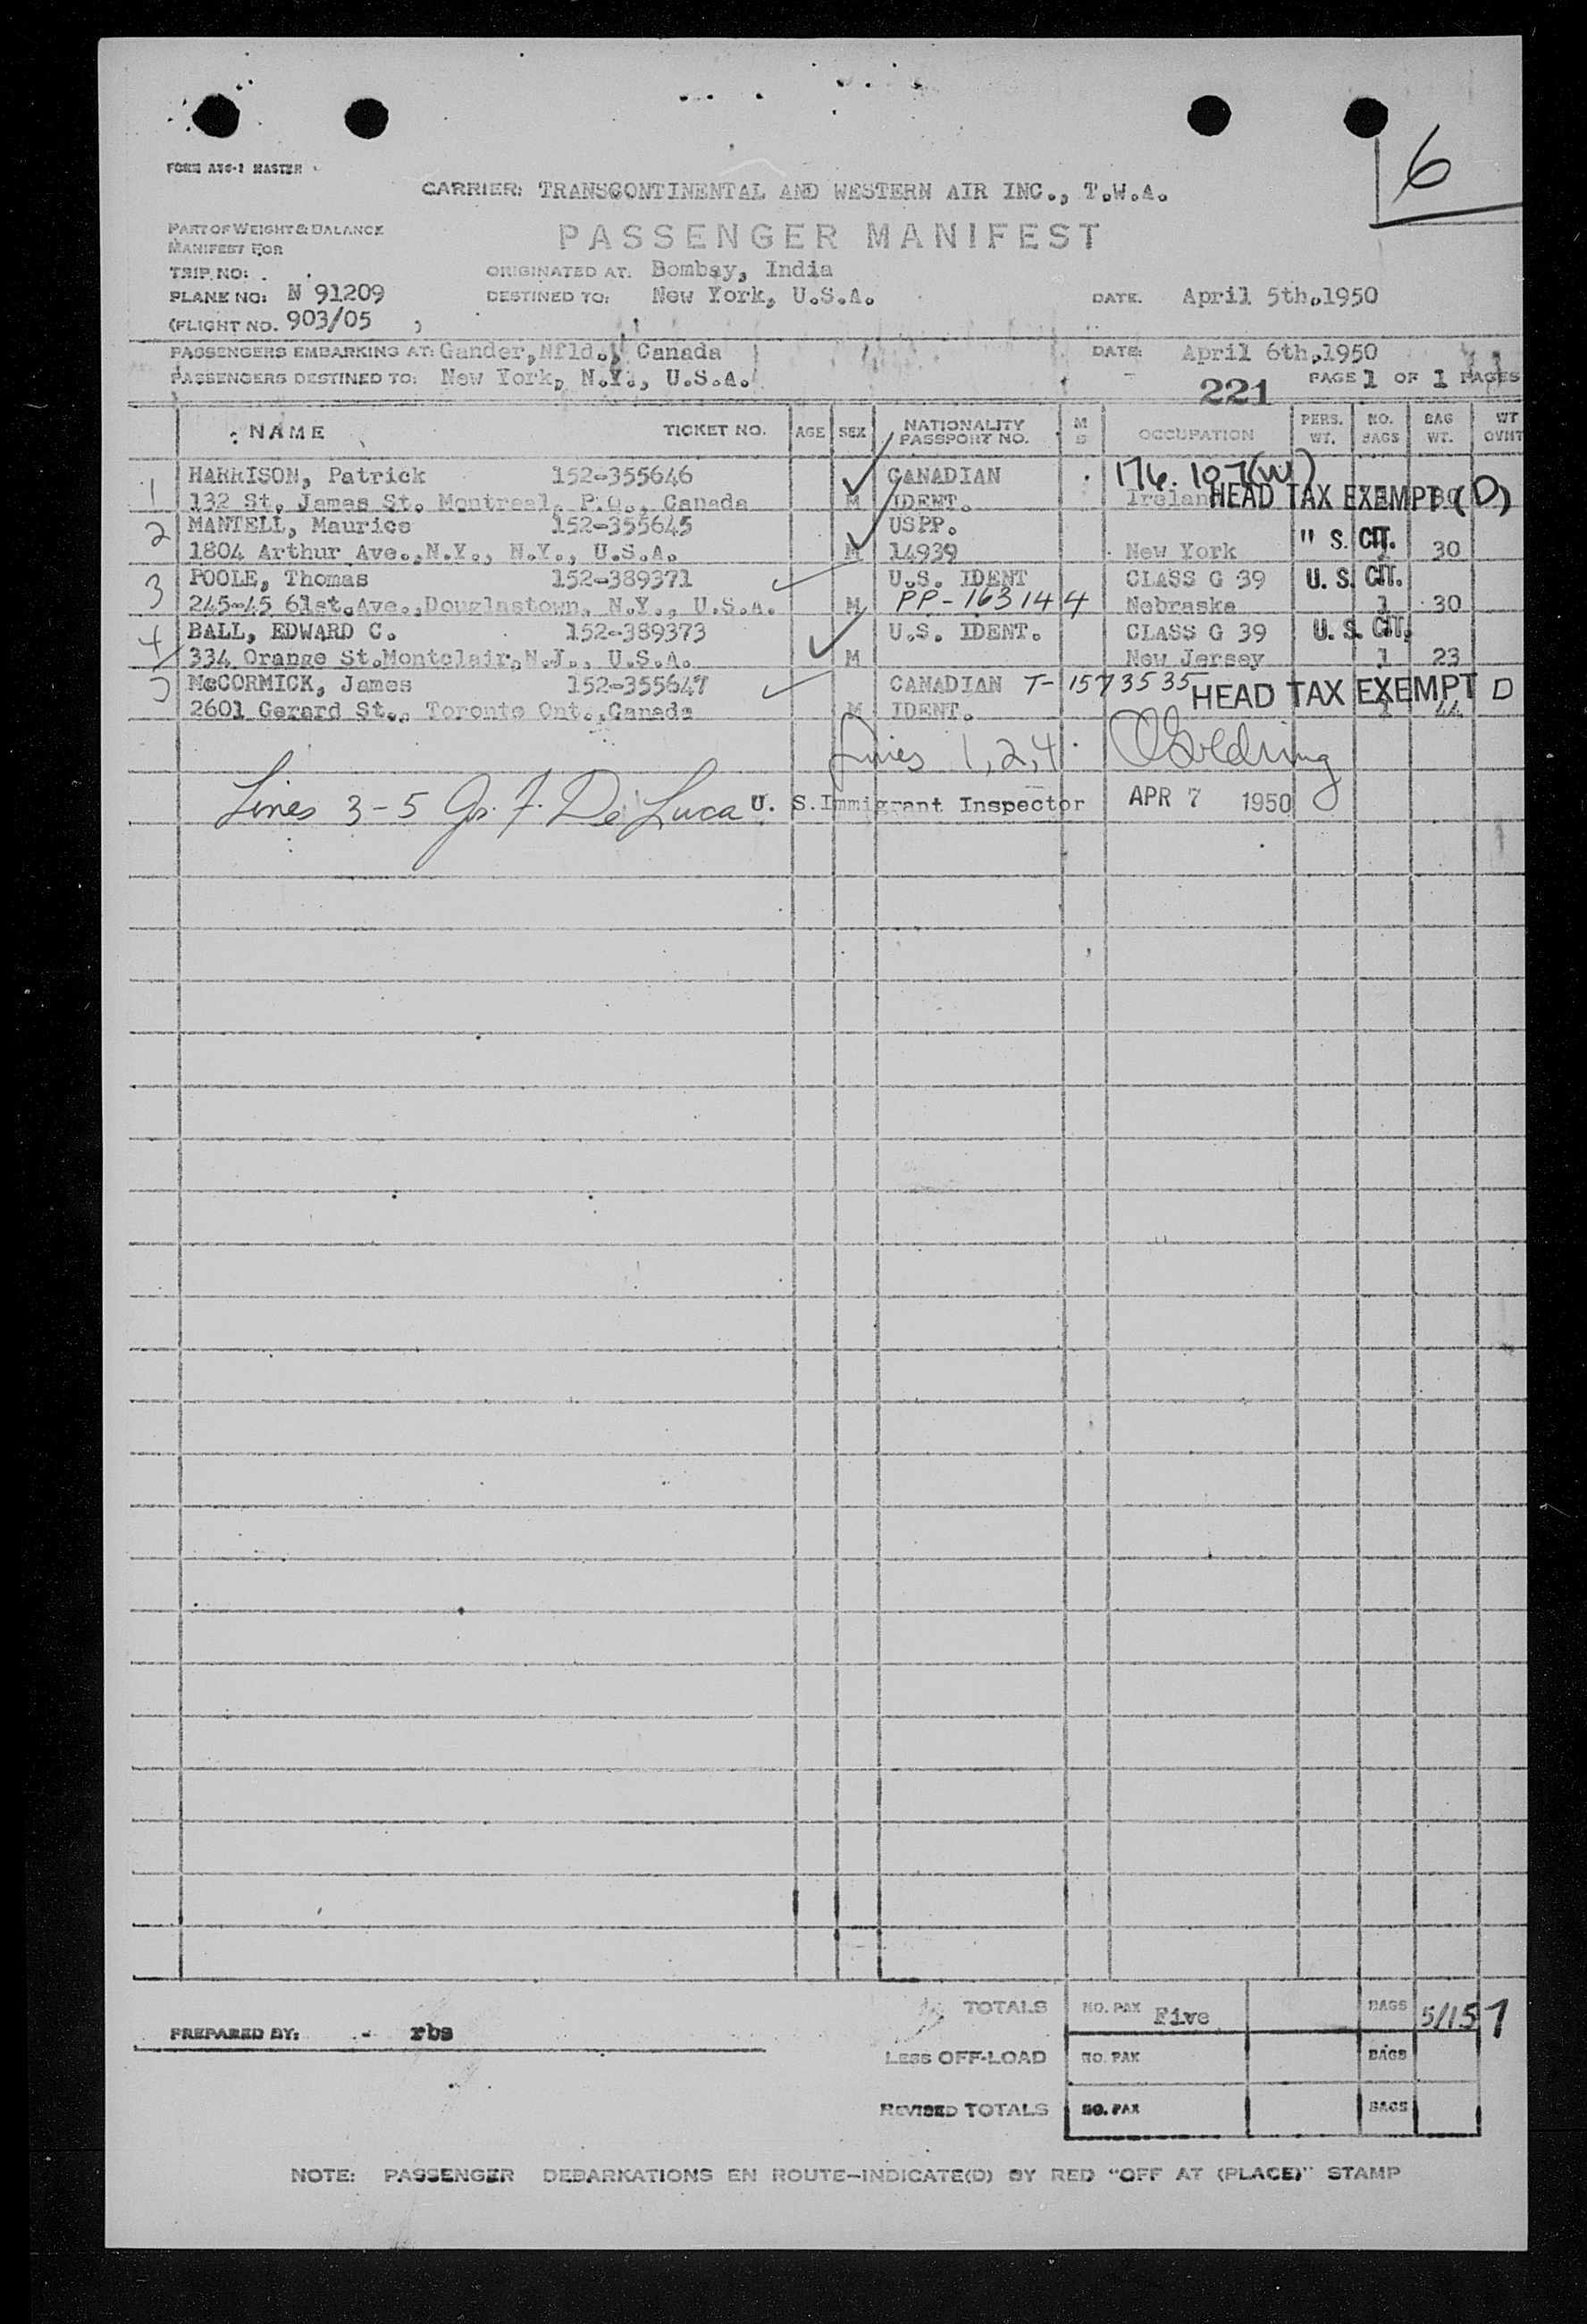 6
FORM ATC-1 MASTER
CARRIER: TRANSCONTINENTAL AND WESTERN AIR INC., T.W.A.
PART OF WEIGHT & BALANCE
MANIFEST FOR
PASSENGER MANIFEST
TRIP NO:
ORIGINATED AT: Bombay, India
PLANE NO: N 91209
DESTINED TO: New York, U.S.A.
DATE. April 5th, 1950
(FLIGHT NO. 903/05 )
PASSENGERS EMBARKING AT: Gander, Nfld., Canada
DATE: April 6th, 1950
PASSENGERS DESTINED TO: New York, N.Y., U.S.A.
221
PAGE 1 OF 1 PAGES
NAME TICKET NO. AGE SEX NATIONALITY PASSPORT NO. M S OCCUPATION PERS. WT. NO. BAGS BAG WT. WT OVNT
1 HARRISON, Patrick 152-355646 CANADIAN 176.107(W)
132 St. James St. Montreal, P.Q., Canada M IDENT. Ireland HEAD TAX EXEMPT (D)
2 MANTELL, Maurice 152-355645 USPP. " S. CIT.
1804 Arthur Ave., N.Y., N.Y., U.S.A. M 14939 New York 30
3 POOLE, Thomas 152-389371 U.S. IDENT CLASS G 39 U.S. CIT.
245-45 61st. Ave., Douglastown, N.Y., U.S.A. M PP-163144 Nebraska 1 30
4 BALL, EDWARD C. 152-389373 U.S. IDENT. CLASS G 39 U.S. CIT.
334 Orange St. Montclair, N.J., U.S.A. M New Jersey 1 23
5 McCORMICK, James 152-355647 CANADIAN T-1573535 HEAD TAX EXEMPT D
2601 Gerard St., Toronto Ont., Canada M IDENT. 44
Lines 1, 2, 4.
Lines 3-5 F. De Luca U. S. Immigrant Inspector APR 7 1950
TOTALS NO. PAX Five BAGS 5/157
PREPARED BY: - rbs
LESS OFF-LOAD NO. PAX BAGS
REVISED TOTALS NO. PAX BAGS
NOTE: PASSENGER DEBARKATIONS EN ROUTE-INDICATE(D) BY RED "OFF AT (PLACE)" STAMP